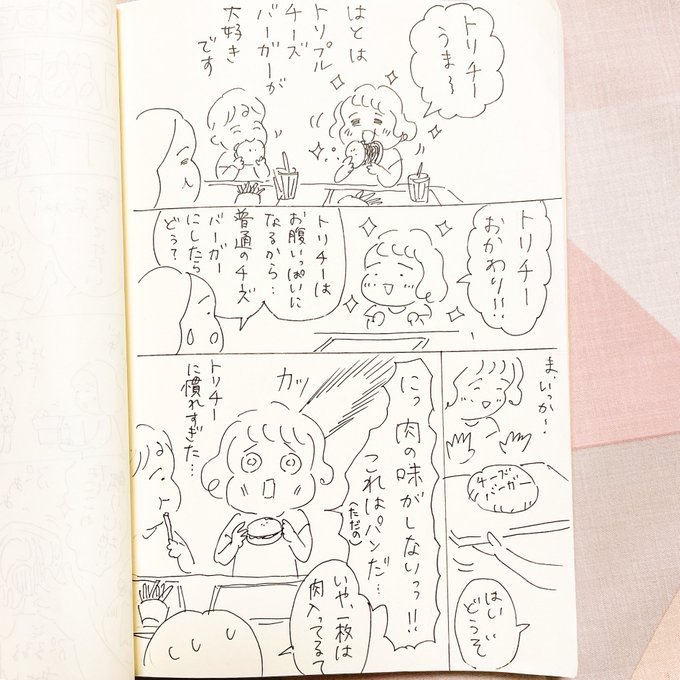 はとは
トリプル
チーズ
バーガーが
大好き
です
トリチー
うま〜
トリチー
おかわり!!
トリチーは
お腹いっぱいに
なるから…
普通のチーズ
バーガー
にしたら
どう?
ま、いっか〜
チーズ
バーガー
はい
どうぞ
にっ肉の味がしないっっ!!
これはパンだ…
(ただの)
ガッ
トリチー
に慣れすぎた…
いや、一枚は
肉入ってるて